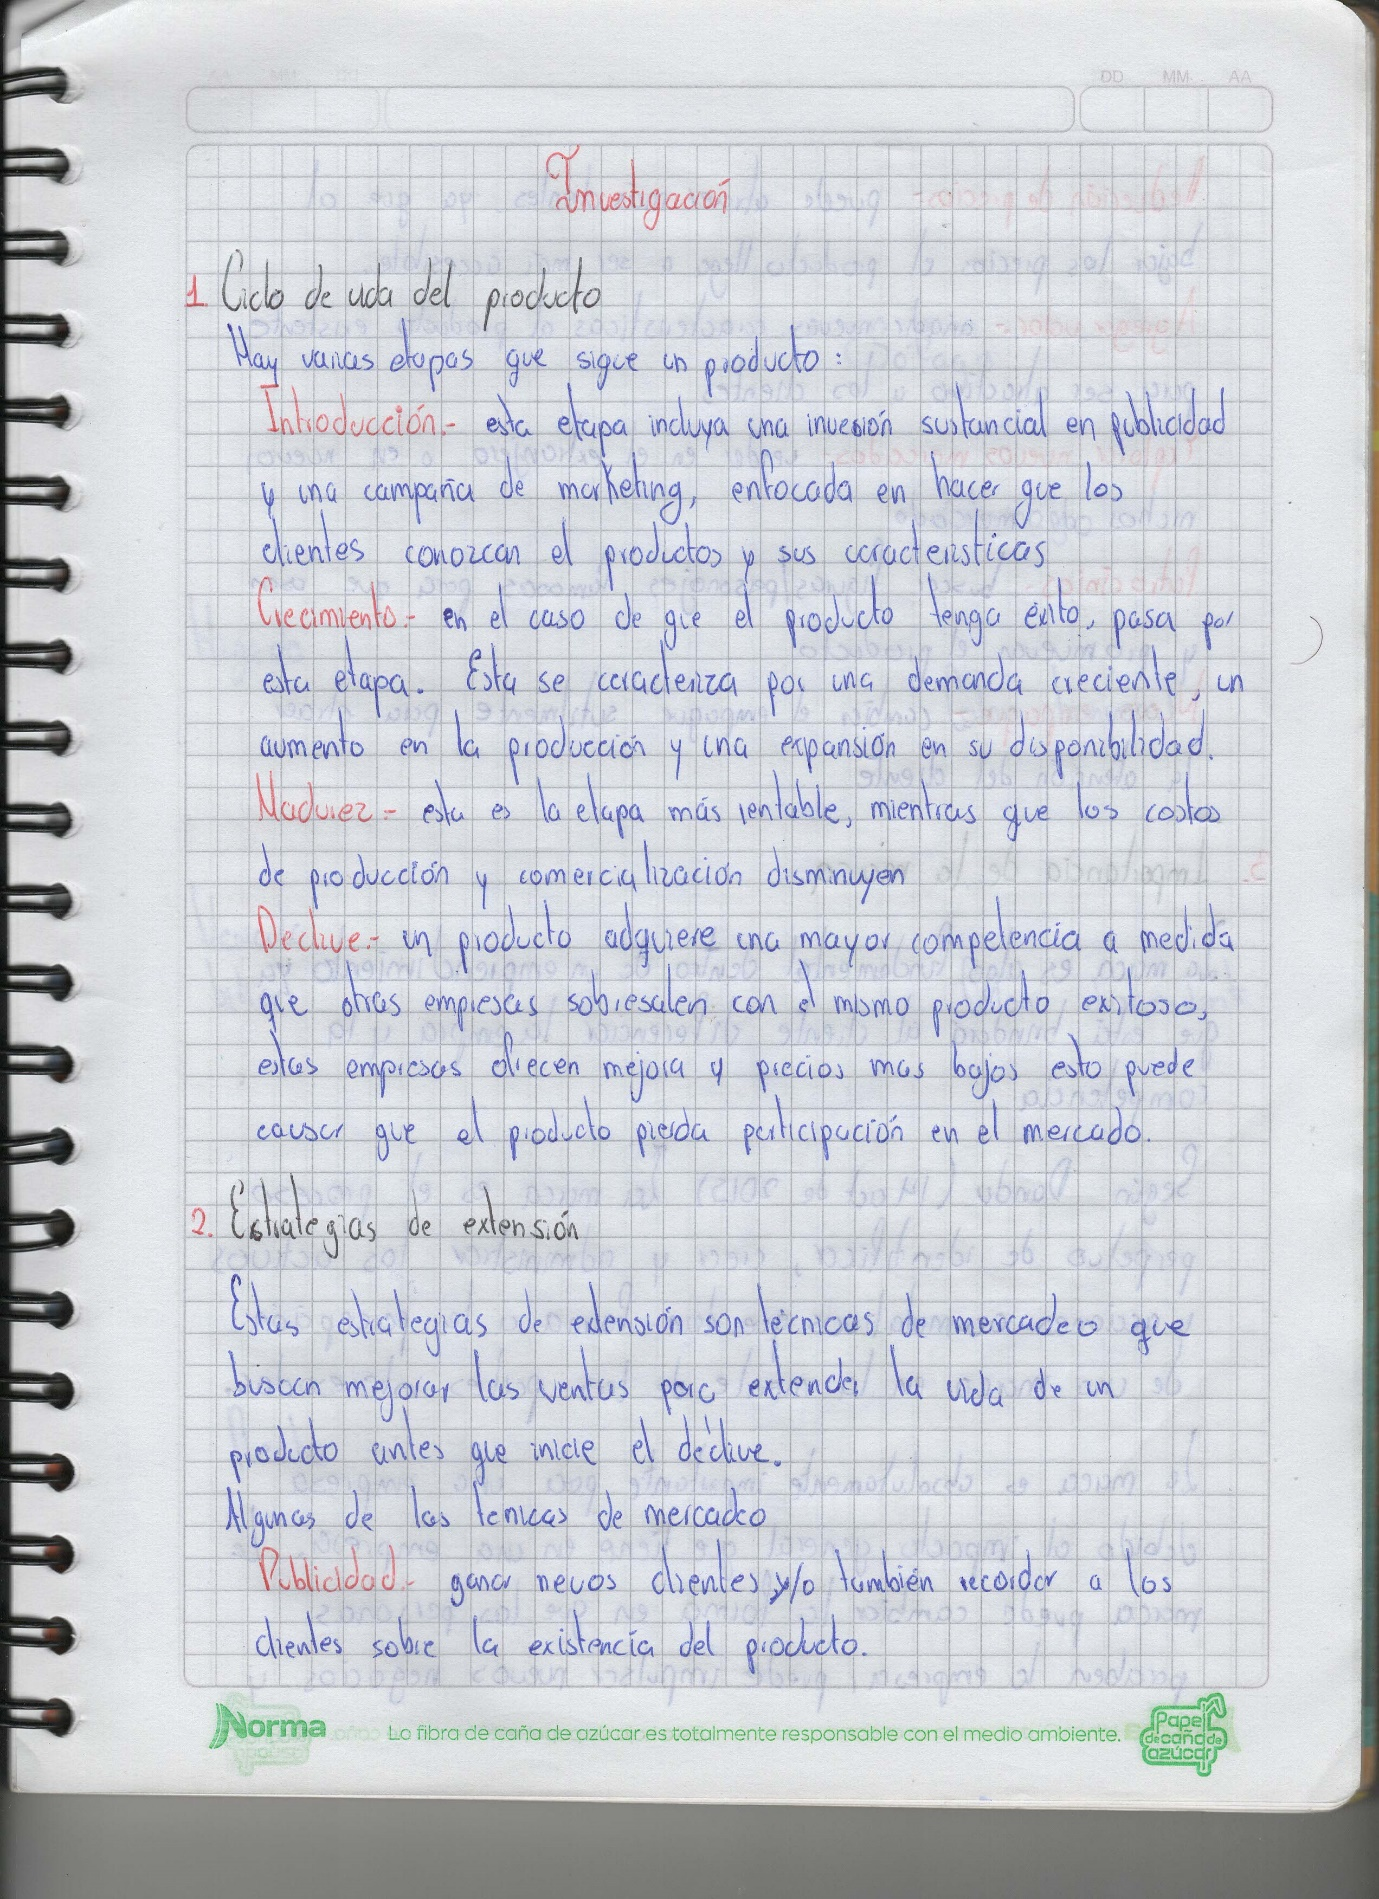 DD MM AA
Investigación
1. Ciclo de vida del producto
Hay varias etapas que sigue un producto:
Introducción.- esta etapa incluya una inversión sustancial en publicidad
y una campaña de marketing, enfocada en hacer que los
clientes conozcan el productos y sus características
Crecimiento.- en el caso de que el producto tenga éxito, pasa por
esta etapa. Esta se caracteriza por una demanda creciente, un
aumento en la producción y una expansión en su disponibilidad.
Madurez.- esta es la etapa más rentable, mientras que los costos
de producción y comercialización disminuyen
Declive.- un producto adquiere una mayor competencia a medida
que otras empresas sobresalen con el mismo producto exitoso,
estas empresas ofrecen mejora y precios mas bajos esto puede
causar que el producto pierda participación en el mercado.
2. Estrategias de extensión
Estas estrategias de extensión son técnicas de mercadeo que
buscan mejorar las ventas para extender la vida de un
producto antes que inicie el declive.
Algunas de las tenicas de mercadeo
Publicidad.- ganar nevos clientes y/o también recordar a los
clientes sobre la existencia del producto.
Norma La fibra de caña de azúcar es totalmente responsable con el medio ambiente. Papel de caña de azúcar